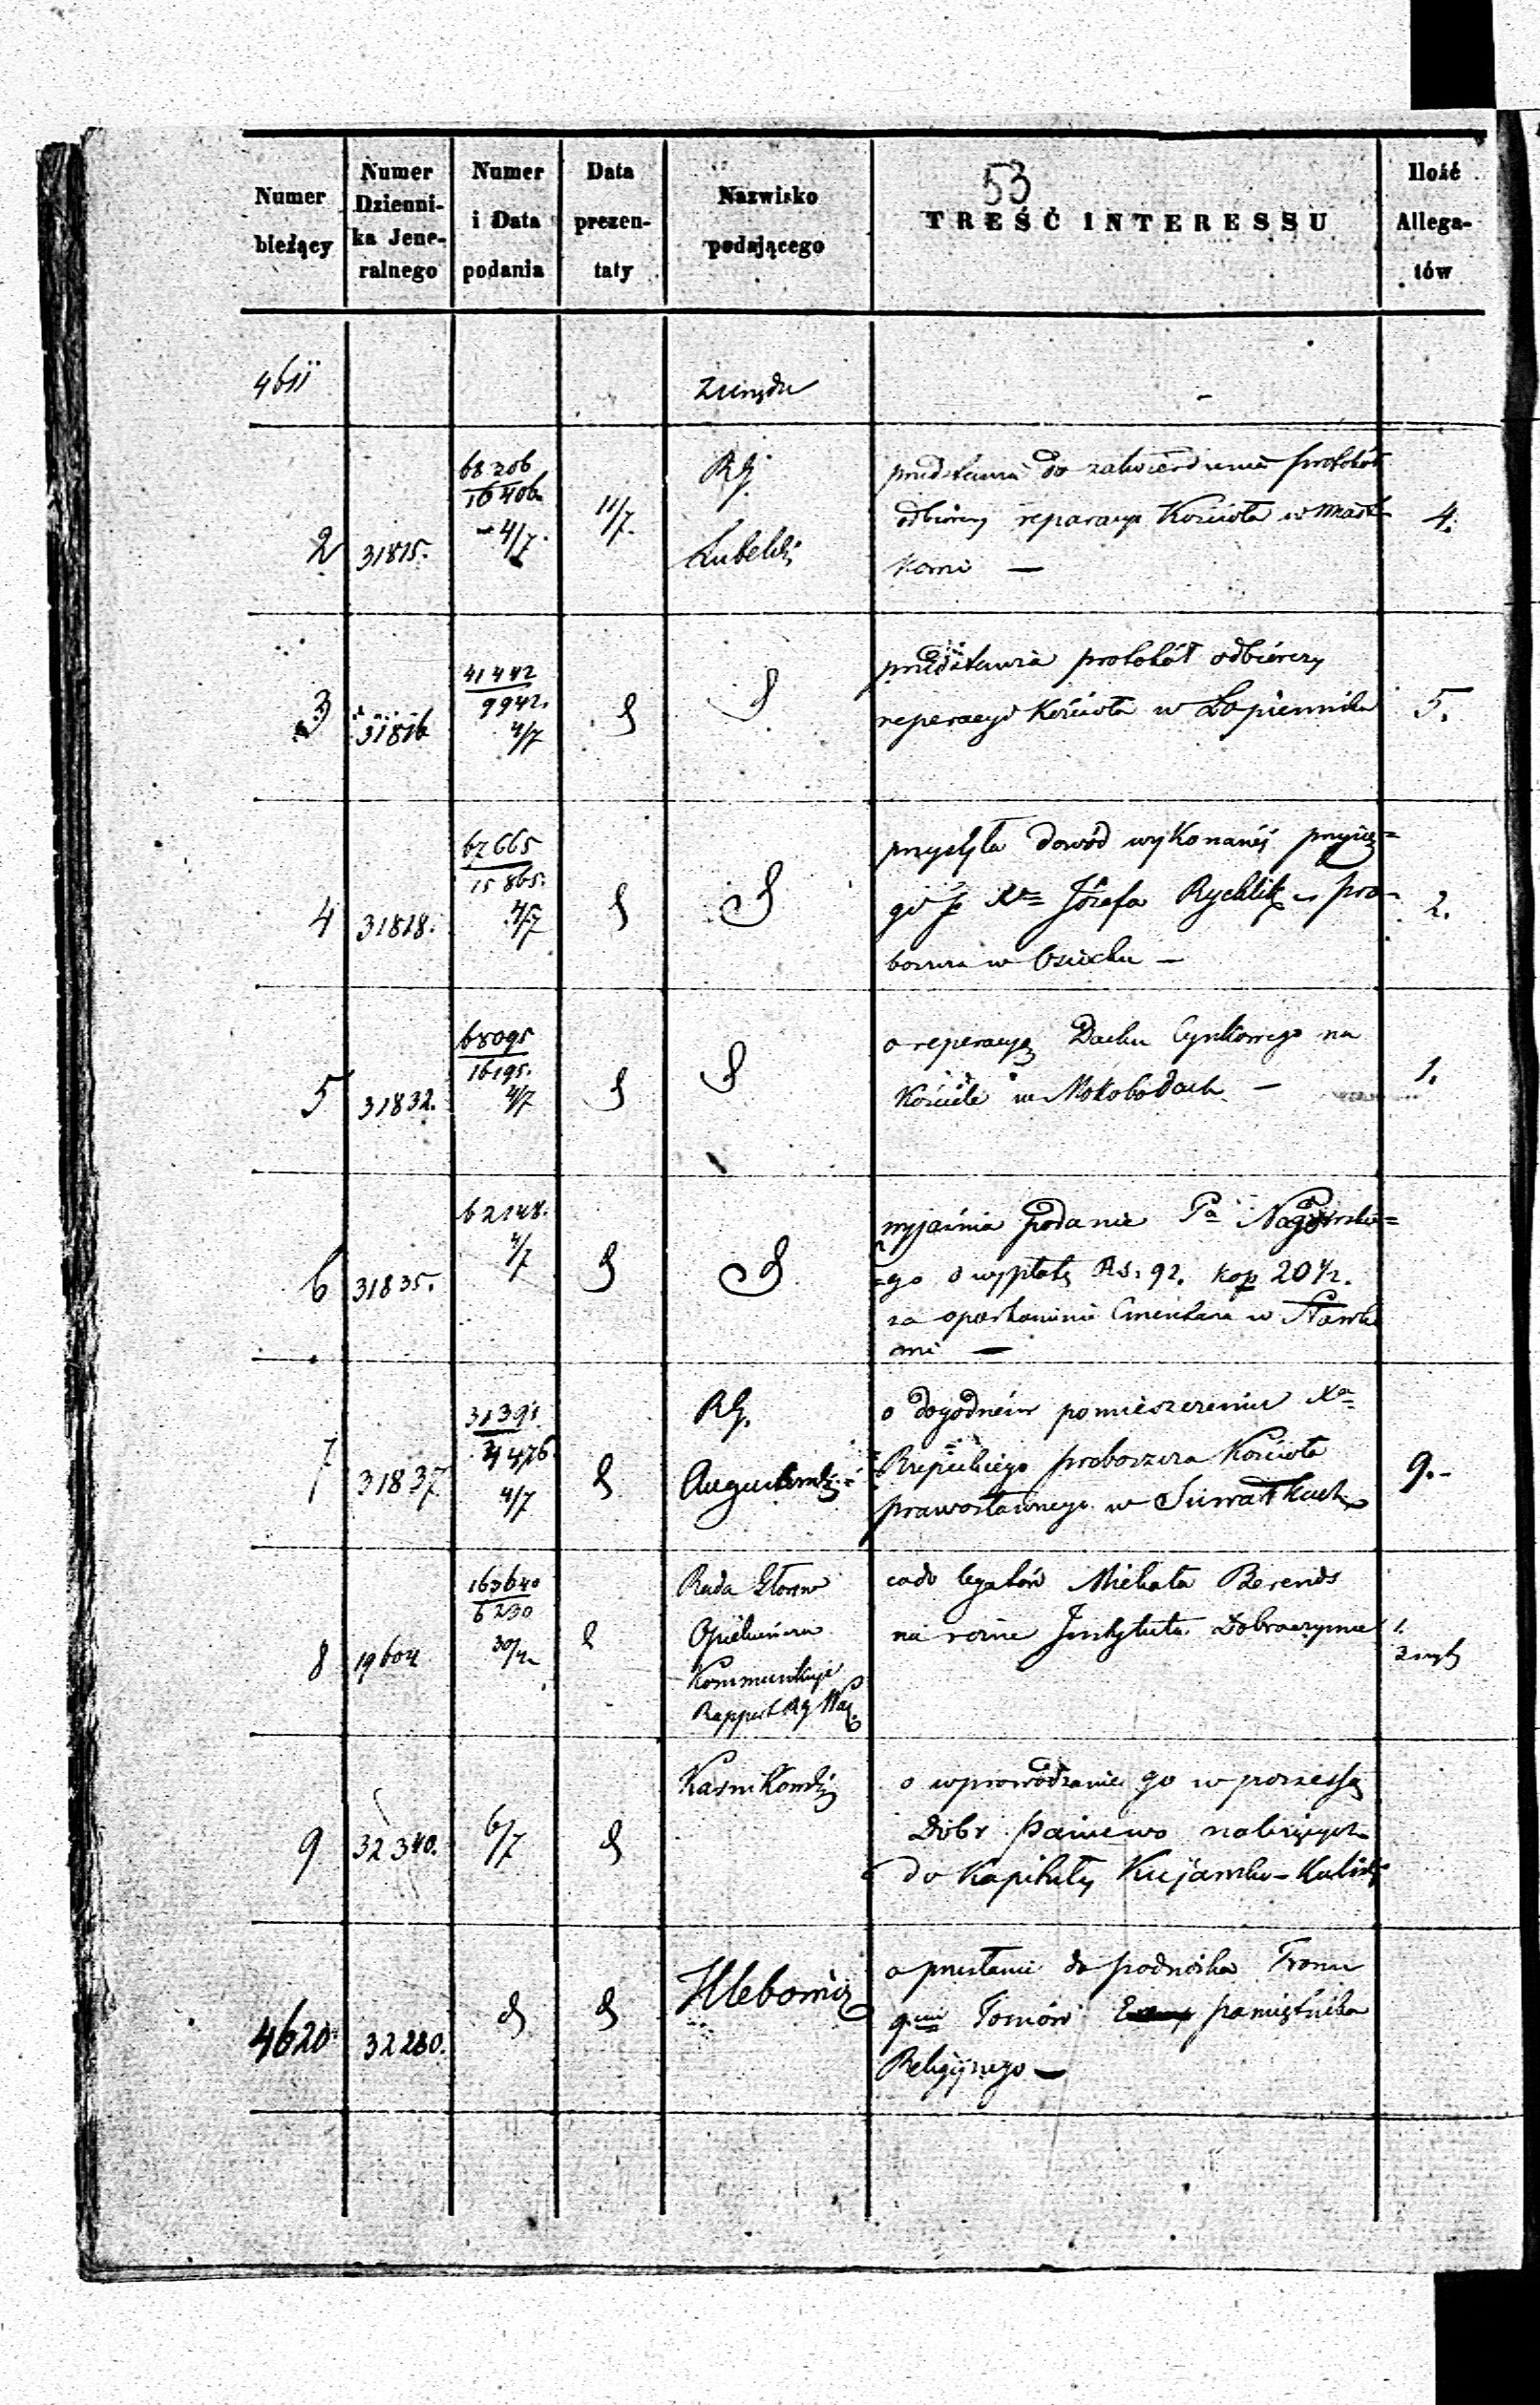 53
Numer bieżący
Numer Dziennika Jeneralnego
Numer i Data podania
Data prezentaty
Nazwisko podającego
TREŚĆ INTERESSU
Ilość Allegatów
4611
z urzędu
2
31815.
68206
16406
4/7.
11/7.
RG.
Lubelski
przedstawia do zatwierdzenia protokół
odbiórczy reparacyi Kościoła w
4.
3
31816
41442
9942.
4/7
przedstawia protokół odbiórczy
reperacyi Kościoła w Łopienniku
5.
4
31818.
67665
15865.
4/7
przysyła dowód wykonanéj przysię=
gi p Xa Józefa Rychlik pro-
boszcza w Osiecku —
2.
5
31832.
68095
16195.
4/7
o reperacyę Dachu Cynkowego na
Kościele w Mokobodach —
1.
6
31835.
62148.
4/7
wyjaśnia podanie Pa Nagórskie=
=go o wypłatę Rs. 92. kop 20 1/2.
za oparkanienie Cmentarza w Sławko
7
31837
31391
4/7
RG.
Augustowski
o dogodném pomieszczeniu Xa
Rzepeckiego proboszcza Kościoła
prawosławnego w Suwałkach
9.-
8
19604
163640
6230
Rada Główna
Opiekuńcza
Kommunikuje
Rapport RG War
co do legatów Michała Berends
na rózne Instytuta Dobroczynne
1.
9
32340.
6/7
Karnkowski
o wprowadzenie go w possessyą
Dóbr Paniewo należących
do Kapituły Kujawsko-Kalisk
4620
32280.
Hlebowicz
o przesłanie do podnóżka Tronu
Tomów pamiętnika
Religijnego —